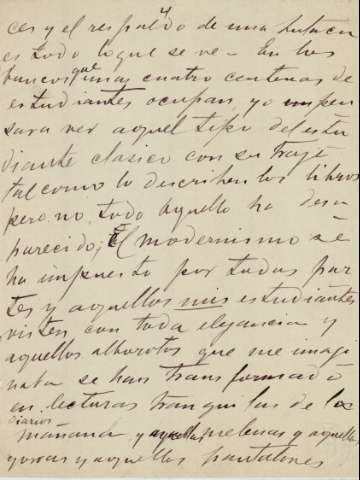 ces y el respaldo de una butaca
es todo lo que se ve - En los
bancos que unas cuatro centenas de
estudiantes ocupan, yo impen
sara ver aquel tipo del estu
diante clasico con su traje
tal como lo describen los libros
pero no, todo aquello ha desa
parecido; El modernismo se
ha impuesto por todas par
tes y aquellos mis estudiantes
visten con toda elegancia y
aquellos alborotos que me imagi
naba se han transformado
en lecturas tranquilas de los
diarios
mañana y aquellas melenas y aquellas
y aquellos pantalones